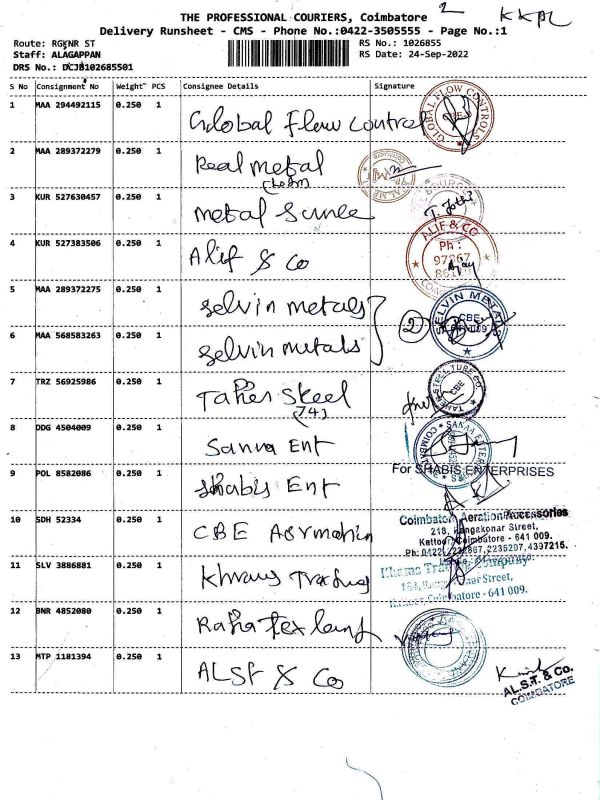 THE PROFESSIONAL COURIERS, Coimbatore
2 KKPL
Delivery Runsheet - CMS - Phone No.:0422-3505555 - Page No.:1
Route: RGKNR ST RS No.: 1026855
Staff: ALAGAPPAN RS Date: 24-Sep-2022
DRS No.: DCJB102685501
S No Consignment No Weight PCS Consignee Details Signature
1 MAA 294492115 0.250 1 Global Flow Control GLOBAL FLOW CONTROLS CBE
2 MAA 289372279 0.250 1 Real metal
3 KUR 527630457 0.250 1 metal
4 KUR 527383506 0.250 1 Alif & Co ALIF & CO Ph:
5 MAA 289372275 0.250 1 selvin metals SELVIN METALS CBE
6 MAA 568583263 0.250 1 selvin metals 2
7 TRZ 56925986 0.250 1 Taher Steel
(74) CBE
8 DDG 4504009 0.250 1 Sanva Ent
For SHABIS ENTERPRISES
9 POL 8582086 0.250 1 Shabis Ent
10 SDH 52334 0.250 1 CBE Coimbatore Aeration Accessories
218, Rangakonar Street,
Kattoor, Coimbatore - 641 009.
11 SLV 3886881 0.250 1 Trading Company
12 BNR 4852080 0.250 1
13 MTP 1181394 0.250 1 ALST & Co AL.S.T. & Co.
COIMBATORE